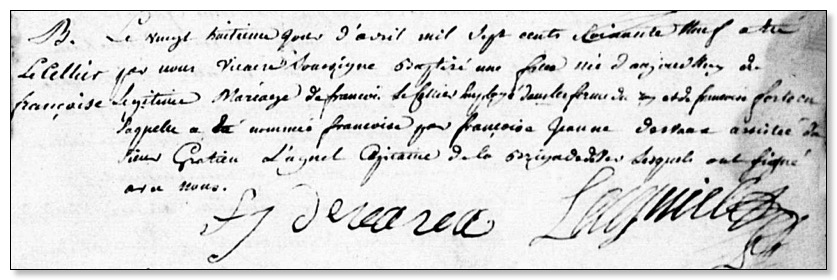 B. Le vingt huitieme jour d'avril mil sept cents soixante neuf a été
Le Cellier par nous vicaire soussigne baptisé une fille née d'aujourdhuy de
françoise legitime Mariage de francois le Cellier employé dans les fermes du roy et de francoise
laquelle a été nommée francoise par françoise Jeanne assistée du
sieur Gratien Capitaine de la Brigade lesquels ont signé
avec nous.